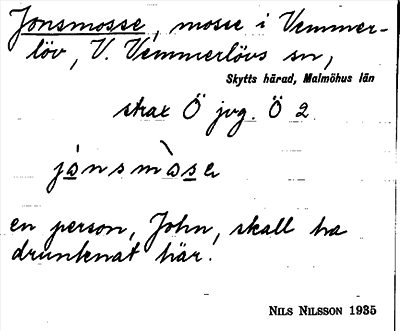 Jonsmosse, mosse i Vemmer-
löv, V. Vemmerlövs sn,
Skytts härad, Malmöhus län
strax Ö jvg. Ö 2
jånsmòse
en person, John, skall ha
drunknat här.
NILS NILSSON 1935